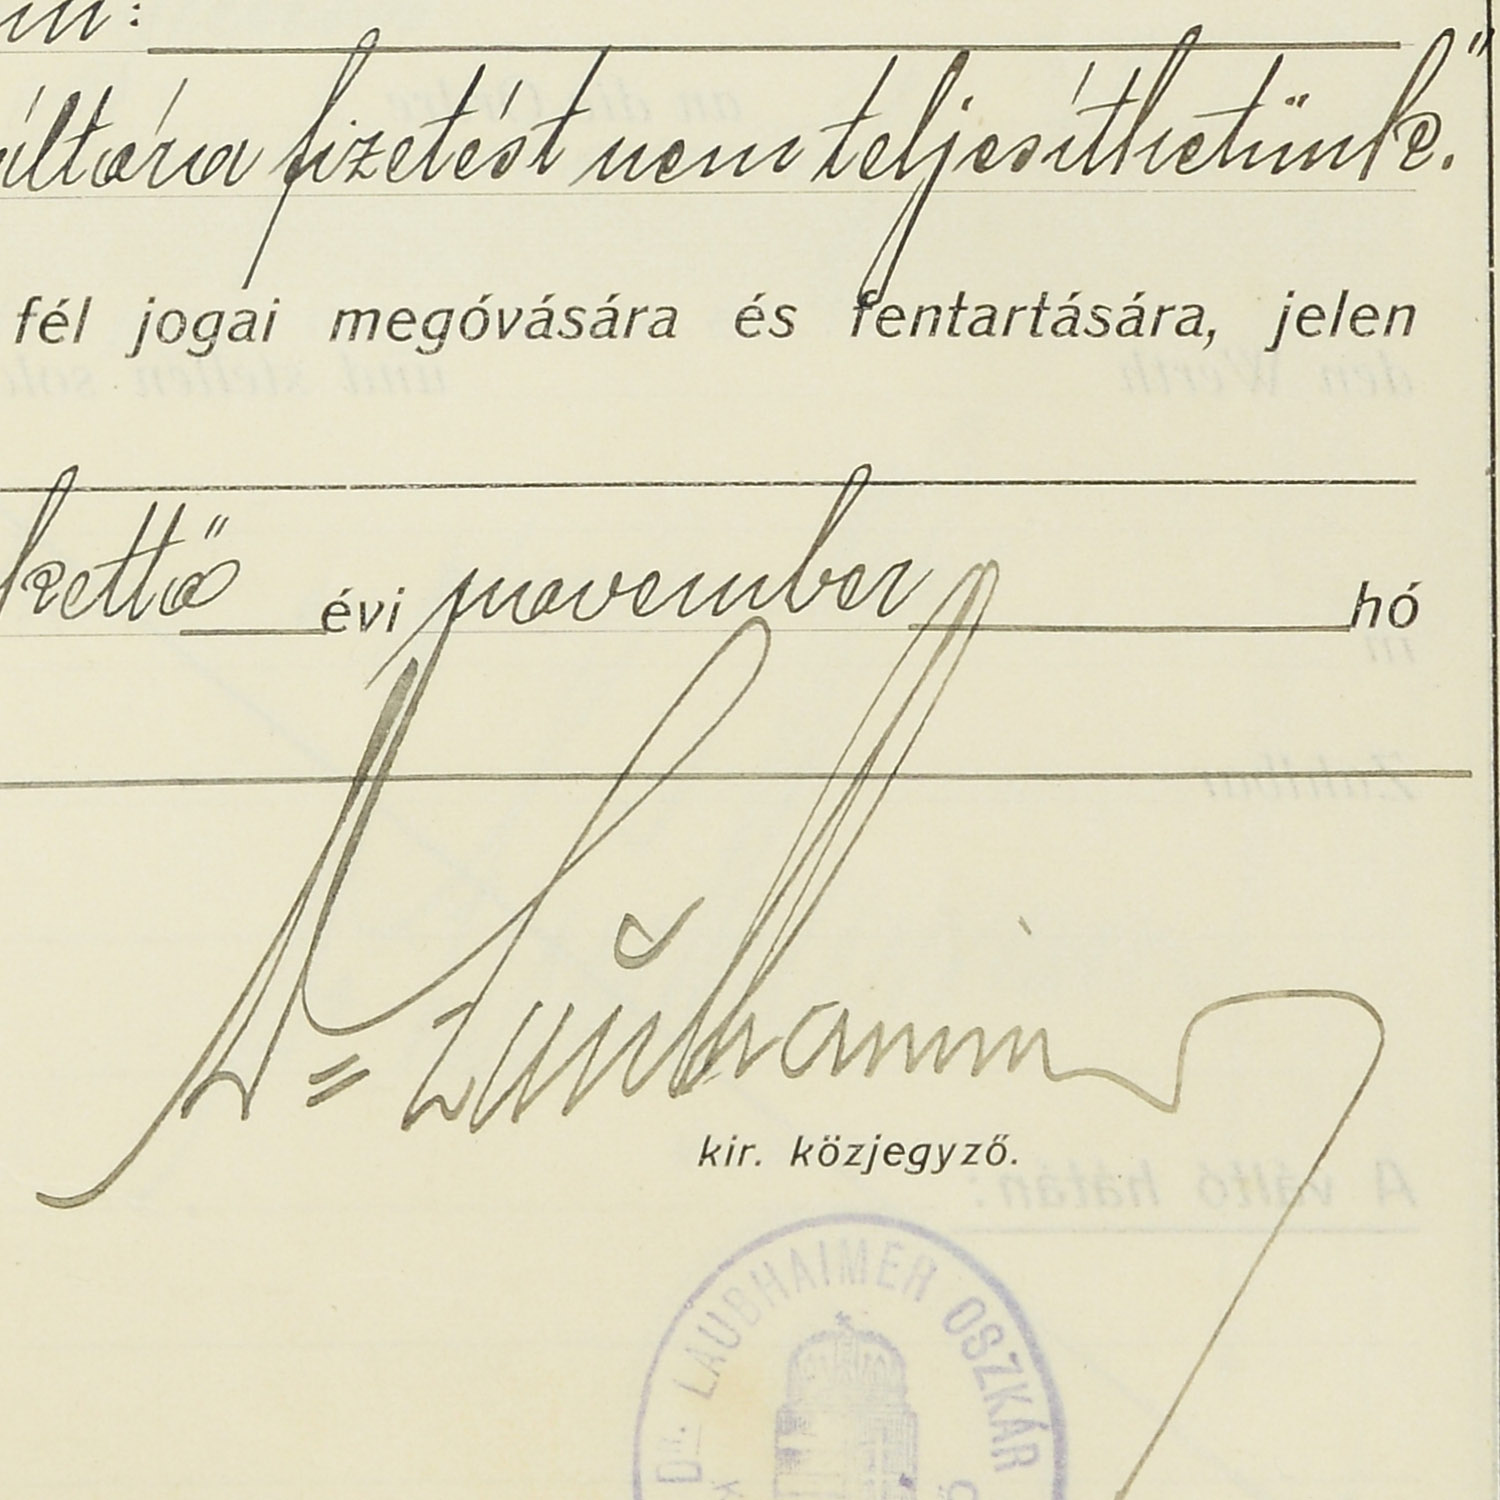 fizetést nem teljesíthetünk."
fél jogai megóvására és fentartására, jelen
kettő évi november hó
Dr Laubhaimer
kir. közjegyző.
Dr. LAUBHAIMER OSZKÁR